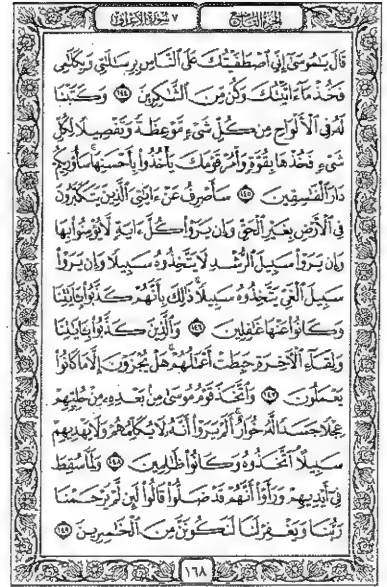 الجزء التاسع ٧ سورة الأعراف
قَالَ يَٰمُوسَىٰٓ إِنِّى ٱصْطَفَيْتُكَ عَلَى ٱلنَّاسِ بِرِسَٰلَٰتِى وَبِكَلَٰمِى
فَخُذْ مَآ ءَاتَيْتُكَ وَكُن مِّنَ ٱلشَّٰكِرِينَ ١٤٤ وَكَتَبْنَا
لَهُۥ فِى ٱلْأَلْوَاحِ مِن كُلِّ شَىْءٍ مَّوْعِظَةً وَتَفْصِيلًا لِّكُلِّ
شَىْءٍ فَخُذْهَا بِقُوَّةٍ وَأْمُرْ قَوْمَكَ يَأْخُذُوا۟ بِأَحْسَنِهَا سَأُو۟رِيكُمْ
دَارَ ٱلْفَٰسِقِينَ ١٤٥ سَأَصْرِفُ عَنْ ءَايَٰتِىَ ٱلَّذِينَ يَتَكَبَّرُونَ
فِى ٱلْأَرْضِ بِغَيْرِ ٱلْحَقِّ وَإِن يَرَوْا۟ كُلَّ ءَايَةٍ لَّا يُؤْمِنُوا۟ بِهَا
وَإِن يَرَوْا۟ سَبِيلَ ٱلرُّشْدِ لَا يَتَّخِذُوهُ سَبِيلًا وَإِن يَرَوْا۟
سَبِيلَ ٱلْغَىِّ يَتَّخِذُوهُ سَبِيلًا ذَٰلِكَ بِأَنَّهُمْ كَذَّبُوا۟ بِـَٔايَٰتِنَا
وَكَانُوا۟ عَنْهَا غَٰفِلِينَ ١٤٦ وَٱلَّذِينَ كَذَّبُوا۟ بِـَٔايَٰتِنَا
وَلِقَآءِ ٱلْـَٔاخِرَةِ حَبِطَتْ أَعْمَٰلُهُمْ هَلْ يُجْزَوْنَ إِلَّا مَا كَانُوا۟
يَعْمَلُونَ ١٤٧ وَٱتَّخَذَ قَوْمُ مُوسَىٰ مِنۢ بَعْدِهِۦ مِنْ حُلِيِّهِمْ
عِجْلًا جَسَدًا لَّهُۥ خُوَارٌ أَلَمْ يَرَوْا۟ أَنَّهُۥ لَا يُكَلِّمُهُمْ وَلَا يَهْدِيهِمْ
سَبِيلًا ٱتَّخَذُوهُ وَكَانُوا۟ ظَٰلِمِينَ ١٤٨ وَلَمَّا سُقِطَ
فِىٓ أَيْدِيهِمْ وَرَأَوْا۟ أَنَّهُمْ قَدْ ضَلُّوا۟ قَالُوا۟ لَئِن لَّمْ يَرْحَمْنَا
رَبُّنَا وَيَغْفِرْ لَنَا لَنَكُونَنَّ مِنَ ٱلْخَٰسِرِينَ ١٤٩
١٦٨